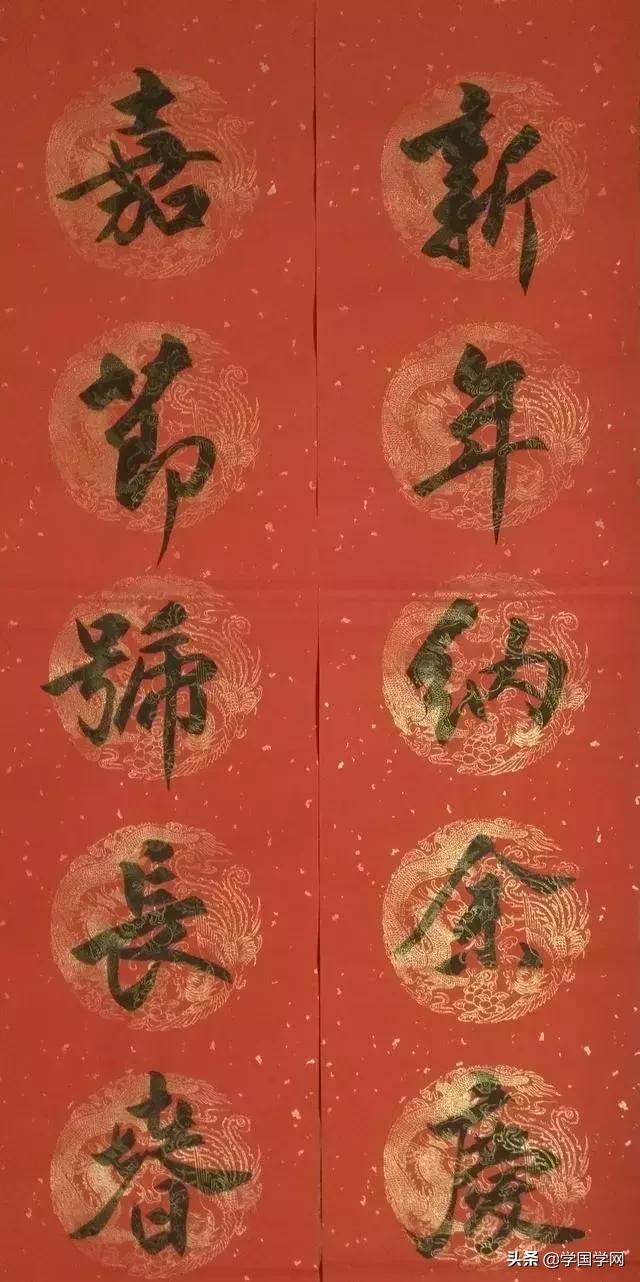 新年纳余慶
嘉節號長春
头条 @学国学网